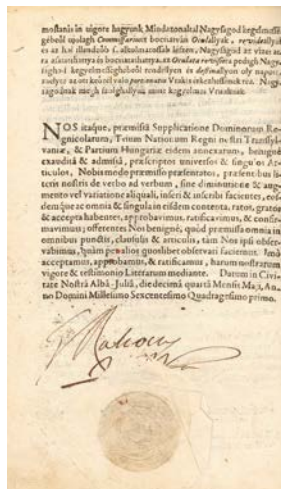 moſtanis in uigore hagyunk Mindazonaltal Nagyſagod kegielmeſſé-
geböl ujolagh Commiſſariuſt bocſatván Oculallyak,
es az hol illendöb s. alkolmatoſsab léſzen, Nagyſagod az vizet
ra aſattathatnya és bocſattathatnya, es Oculata reviſiora pedigh Nagy-
ſághod kegyelmeſſéghéböl rendellyen és deſtinallyon oly napot,
az ott közel valo Uraknak érkezheſſenek rea. Nagy-
ſagodnak meg ſzolghallyuk mint kegyelmes Urunknak.
NOS itaque, præmiſſa Supplicatione Dominorum Re-
gnicolarum, Trium Nationum Regni noſtri Tranſyl-
vaniæ, & Partium Hungariæ eidem annexarum, benignè
exauditâ & admiſſâ, præſcriptos univerſos & ſingulos Ar-
ticulos, Nobis modo præmiſſo præſentatos, præſentibus li-
teris noſtris de verbo ad verbum, ſine diminutione & aug-
mento vel variatione aliquali, inſeri & inſcribi facientes, eoſ-
demque ac omnia & ſingula in eiſdem contenta, ratos, gratos
& accepta habentes, approbavimus, ratificavimus, & confir-
mavimus; offerentes Nos benignè, quòd præmiſſa omnia in
omnibus punctis, clauſulis & articulis, tàm Nos ipſi obſer-
vabimus, quàm per alios quoslibet obſervari faciemus. Imò
acceptamus, approbamus, & ratificamus, harum noſtrarum
vigore & teſtimonio Literarum mediante. Datum in Civi-
tate Noſtrâ Albâ-Juliâ, die decimâ quartâ Menſis Maji, An-
no Domini Milleſimo Sexcenteſimo Quadrageſimo primo.